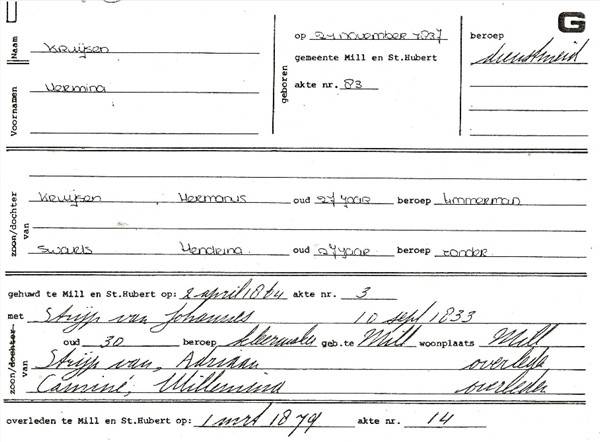 G
Naam Kruijsen op 24 november 1837 beroep
gemeente Mill en St.Hubert dienstmeid
Voornamen Hermina geboren akte nr. 83
zoon/dochter van
Kruijsen Hermanus oud 27 jaar beroep timmerman
Swavels Hendrina oud 27 jaar beroep zonder
gehuwd te Mill en St.Hubert op: 2 april 1864 akte nr. 3
met Strijp van Johannes 10 sept 1833
oud 30 beroep geb.te Mill woonplaats Mill
zoon/dochter van
Strijp van, Adriaan overleden
Camině, Willemina overleden
overleden te Mill en St.Hubert op: 1 mrt 1879 akte nr. 14